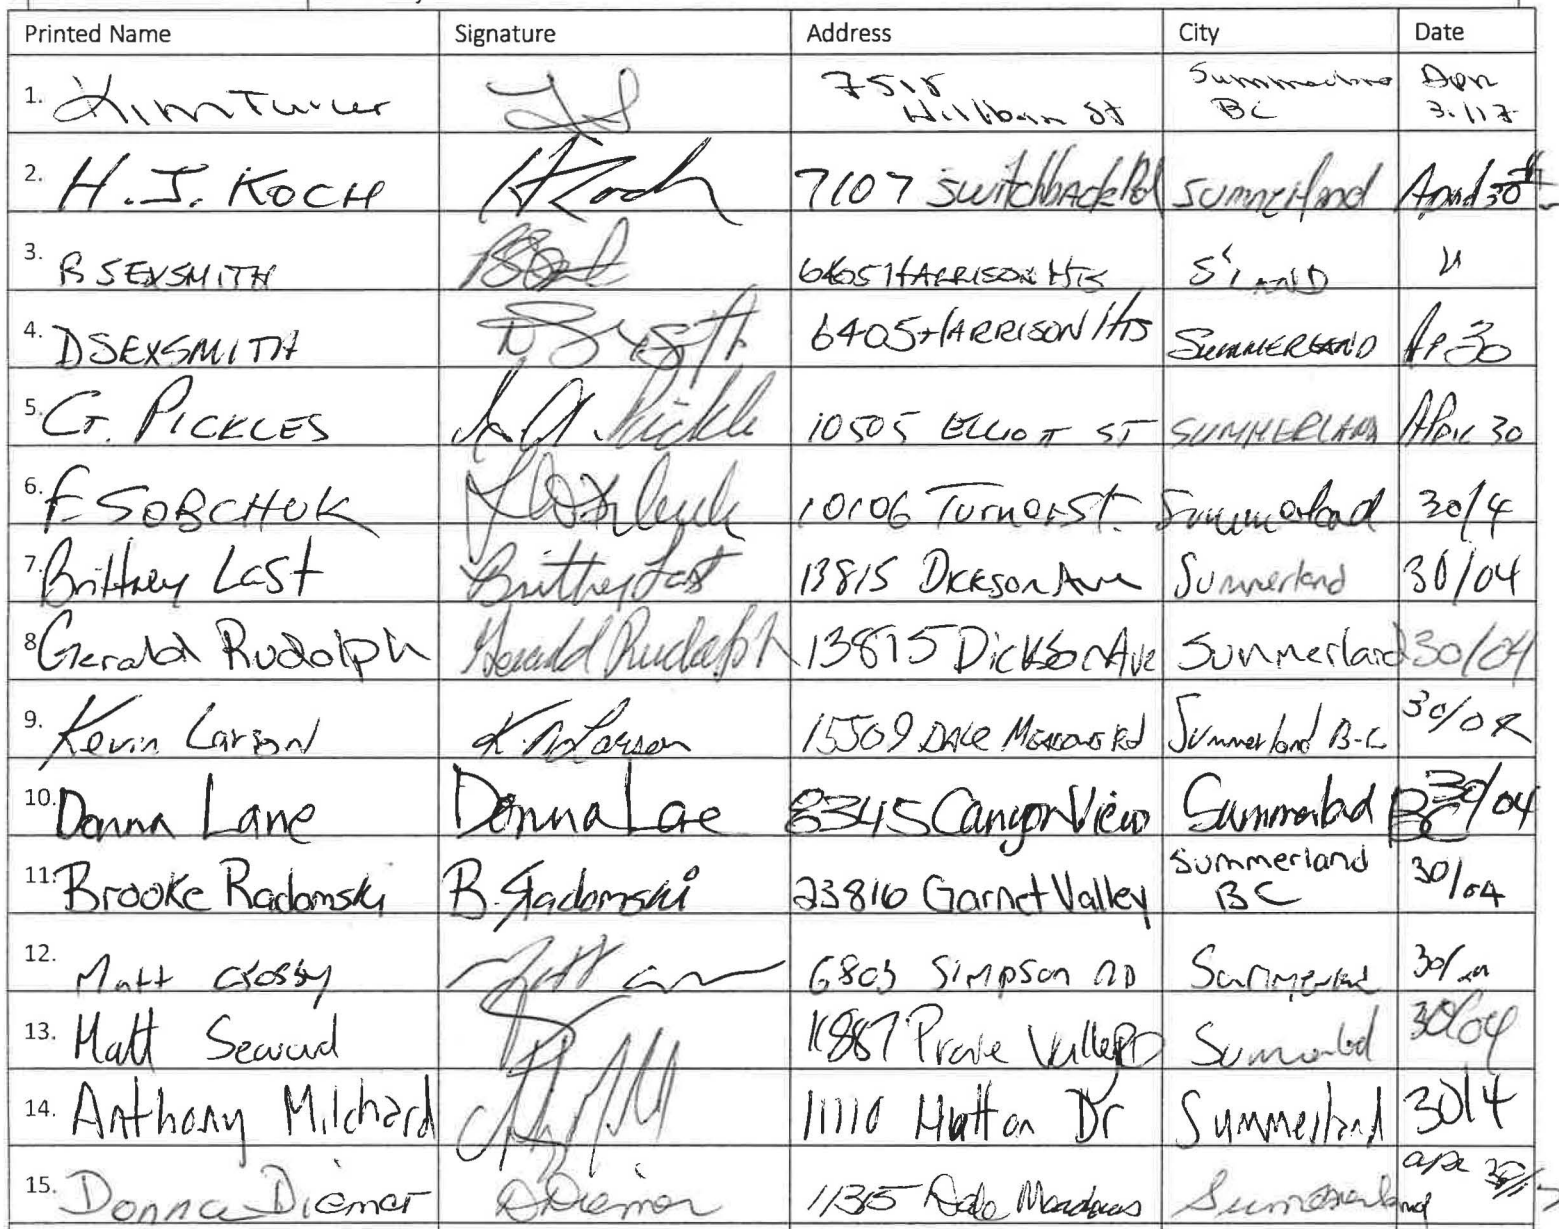 Printed Name Signature Address City Date
1. Kim Turner 7518 Summerland
BC
2. H.J. KOCH H Koch 7107 Switchback Rd Summerland April 30th
3. R SEXSMITH HARRISON HTS S'LAND "
4. D SEXSMITH D Sexsmith 6405 HARRISON HTS SUMMERLAND Ap 30
5. G. PICKLES Pickle 10505 ELLIOTT ST SUMMERLAND APRIL 30
6. F. SOBCHUK 10106 Turner St. Summerland 30/4
7. Brittney Last Brittney Last 13815 DICKSON Ave Summerland 30/04
8. Gerald Rudolph Gerald Rudolph 13875 Dickson Ave Summerland 30/04
9. Kevin Larson K. Larson 15509 DALE MEADOWS Rd Summerland B-C
10. Donna Lane Donna Lae 8345 Canyon View Summerlad BC 30/04
11. Brooke Radomski B. Radomski 23816 Garnet Valley Summerland
BC 30/04
12. Matt Crosby Matt 6803 Simpson RD Summerland
13. Matt Seward Summerland 30/04
14. Anthony Milchard 11110 Hutton Dr Summerland 30/4
15. Donna Diemer D Diemer Dale Meadows Summerland